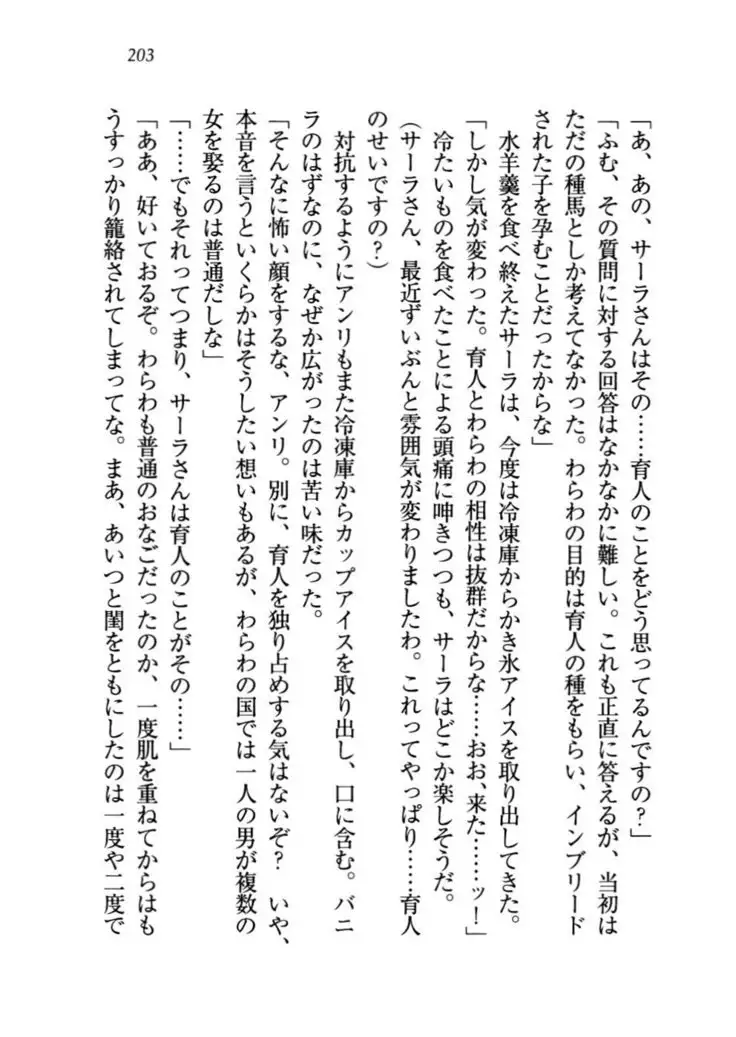 203
「あ、あの、サーラさんはその……育人のことをどう思ってるんですの？」
「ふむ、その質問に対する回答はなかなかに難しい。これも正直に答えるが、当初は
ただの種馬としか考えてなかった。わらわの目的は育人の種をもらい、インブリード
された子を孕むことだったからな」
水羊羹を食べ終えたサーラは、今度は冷凍庫からかき氷アイスを取り出してきた。
「しかし気が変わった。育人とわらわの相性は抜群だからな……おお、来た……ッ！」
冷たいものを食べたことによる頭痛に呻きつつも、サーラはどこか楽しそうだ。
（サーラさん、最近ずいぶんと雰囲気が変わりましたわ。これってやっぱり……育人
のせいですの？）
対抗するようにアンリもまた冷凍庫からカップアイスを取り出し、口に含む。バニ
ラのはずなのに、なぜか広がったのは苦い味だった。
「そんなに怖い顔をするな、アンリ。別に、育人を独り占めする気はないぞ？　いや、
本音を言うといくらかはそうしたい想いもあるが、わらわの国では一人の男が複数の
女を娶るのは普通だしな」
「……でもそれってつまり、サーラさんは育人のことがその……」
「ああ、好いておるぞ。わらわも普通のおなごだったのか、一度肌を重ねてからはも
うすっかり籠絡されてしまってな。まあ、あいつと閨をともにしたのは一度や二度で